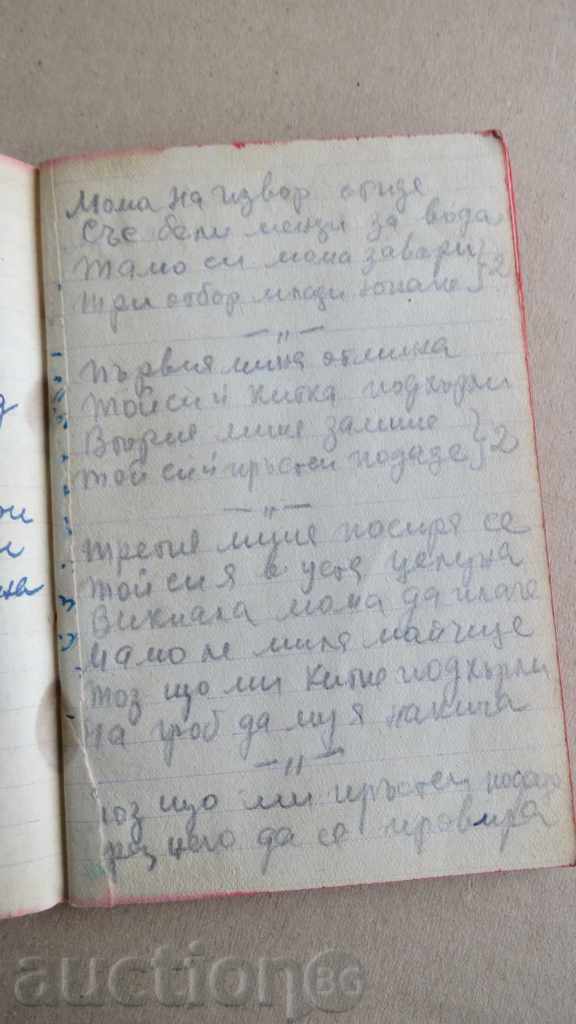 Мома на извор отиде
Със бели менци за вода
Тамо си мома завари } 2
три отбор млади юнака
— „ —
Първия мина отмина
той си й китка подхърли
Втория мина замина } 2
той си й пръстен подаде
— „ —
третия мина поспря се
той си я в уста целуна
Викнала мома да плаче
Мамо ле мила майчице
тоз що ми китка подхърли
на гроб да му я накича
— „ —
тоз що ми пръстен подаде
рез него да са провира
auctionBG